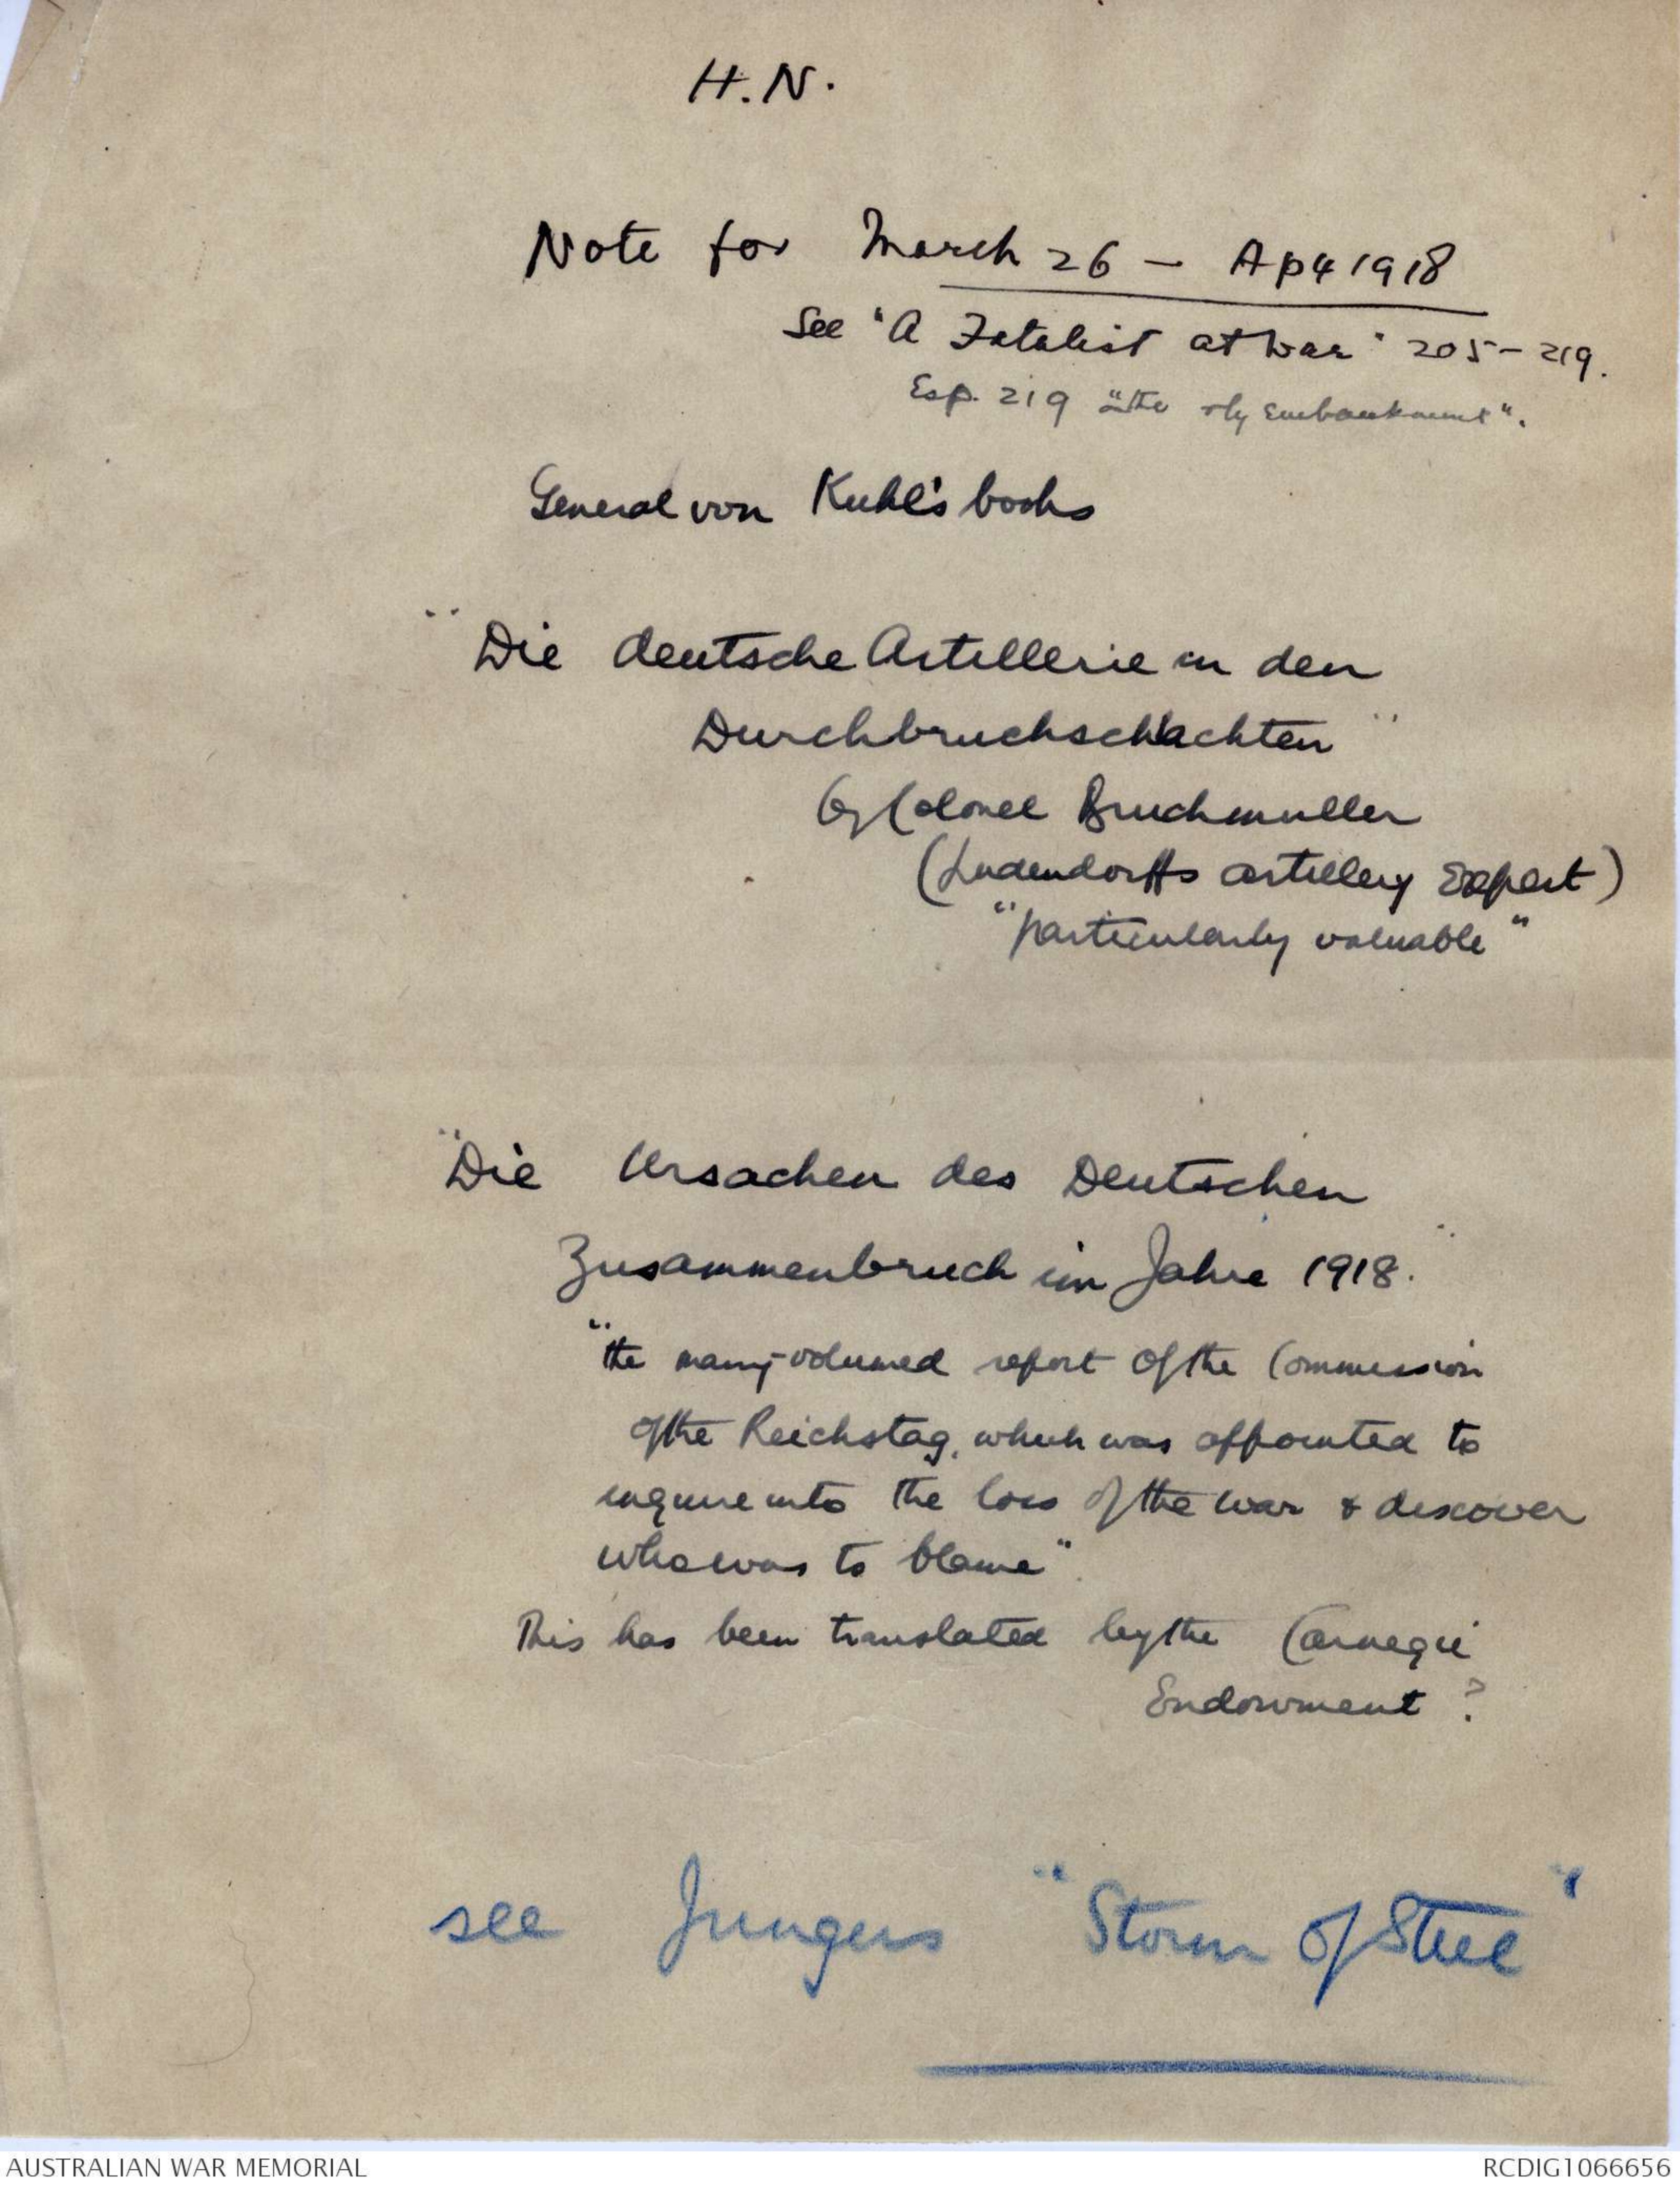 H.N.
Note for March 26 - Ap 4 1918
See "A Fatalist at War" 205-219.
Esp. 219 "the rly embankment".
General von Kuhl's books
"Die deutsche Artillerie in den
Durchbruchschlachten"
by Colonel Bruchmuller
(Ludendorffs artillery Expert)
"particularly valuable"
"Die Ursachen des Deutschen
Zusammenbruch im Jahre 1918."
"the many-volumed report of the Commission
of the Reichstag, which was appointed to
inquire into the loss of the war & discover
who was to blame".
This has been translated by the Carnegie
Endowment ?
see Jungers "Storm of Steel"
AUSTRALIAN WAR MEMORIAL
RCDIG1066656